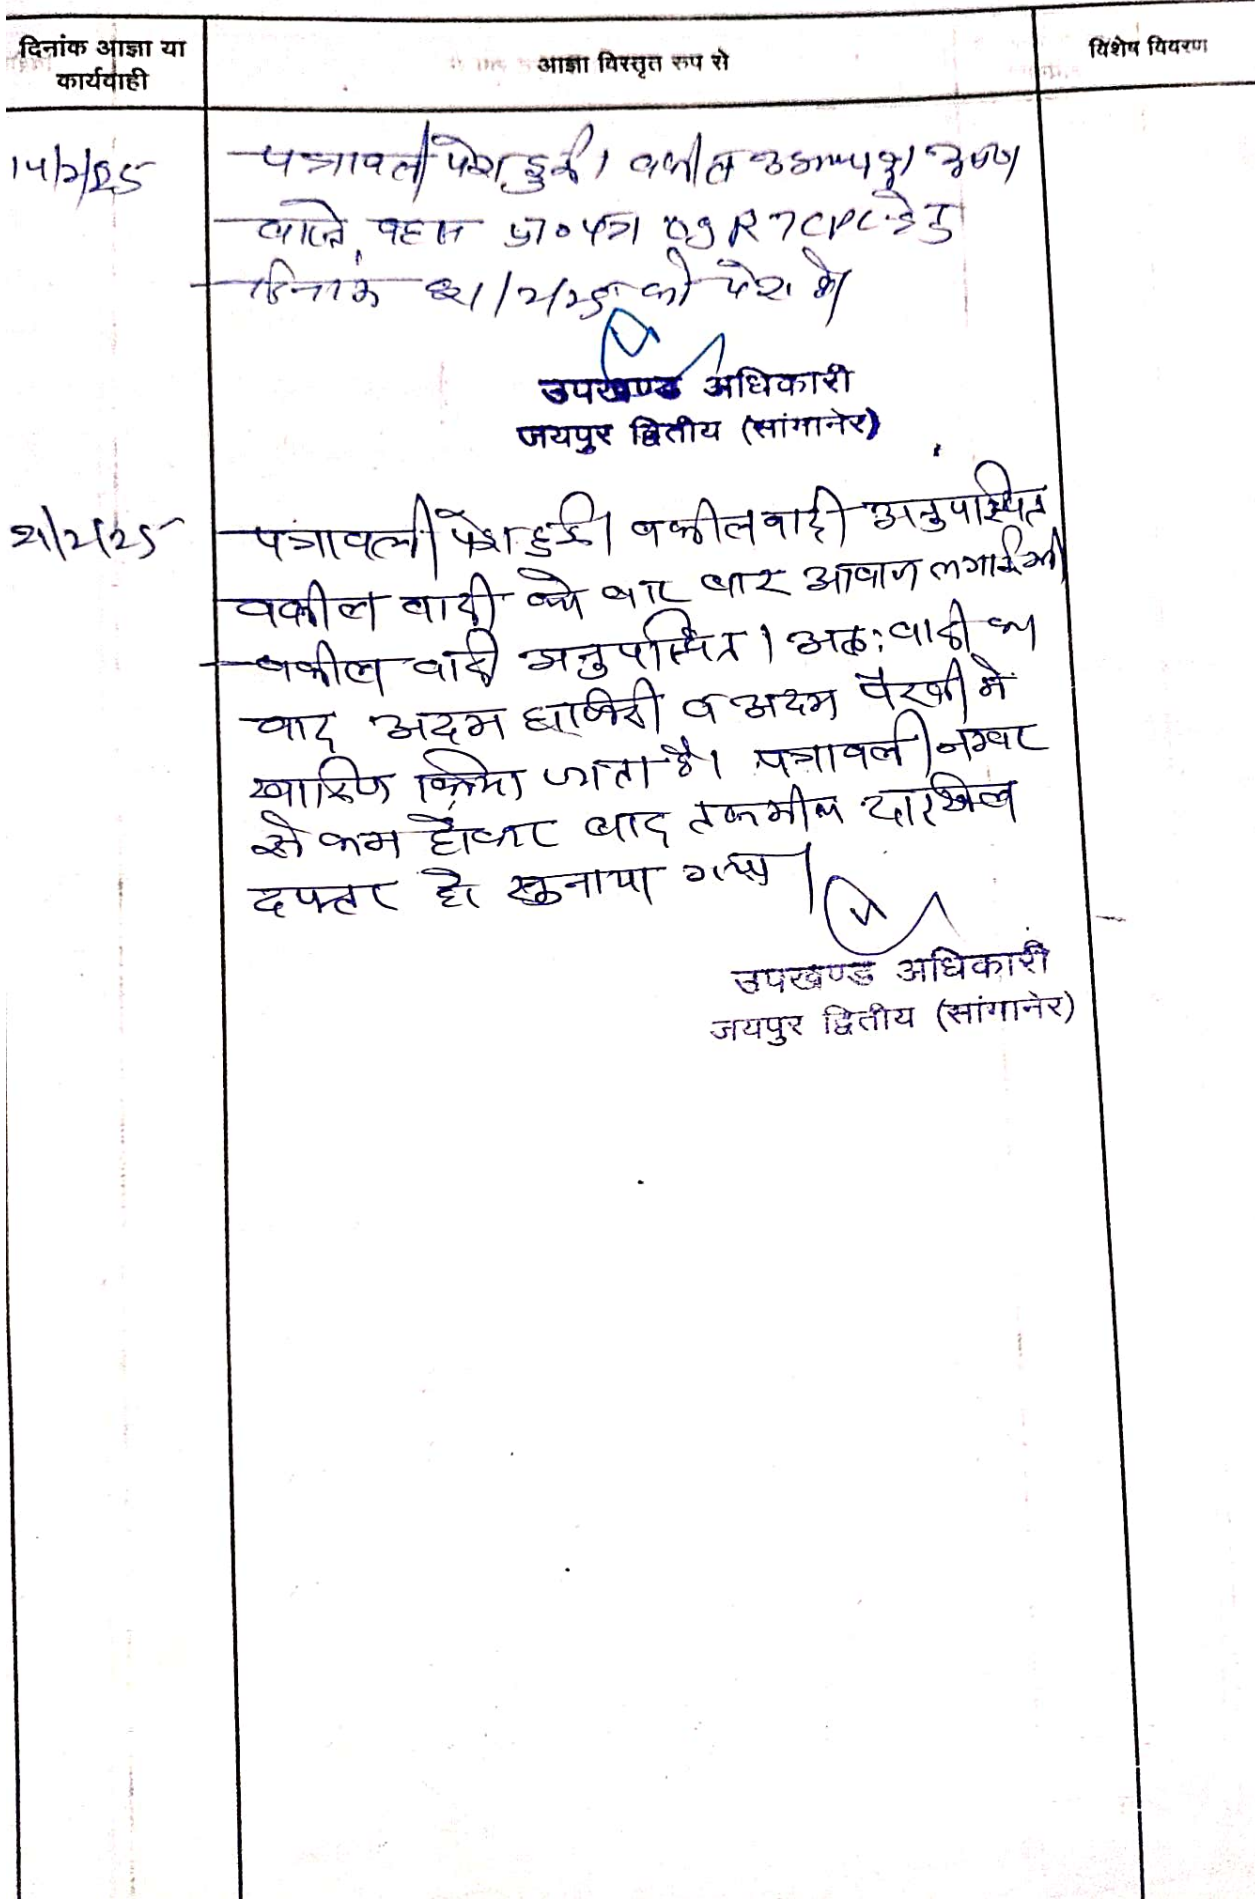 दिनांक आज्ञा या
कार्यवाही
आज्ञा विस्तृत रुप से
विशेष विवरण
14/2/25
पत्रावली पेश हुई। वकील उभयपक्ष उप०
वास्ते बहस प्रा० पत्र R 7 CPC हेतु
दिनांक 21/2/25 को पेश हो
उपखण्ड अधिकारी
जयपुर द्वितीय (सांगानेर)
21/2/25
पत्रावली पेश हुई। वकील वादी अनुपस्थित
वकील वादी को बार बार आवाज लगाई गयी
वकील वादी अनुपस्थित। अतः वादी का
वाद अदम हाजिरी व अदम पैरवी में
खारिज किया जाता है। पत्रावली नम्बर
से कम होकर बाद तकमील दाखिल
दफ्तर हो सुनाया गया।
उपखण्ड अधिकारी
जयपुर द्वितीय (सांगानेर)